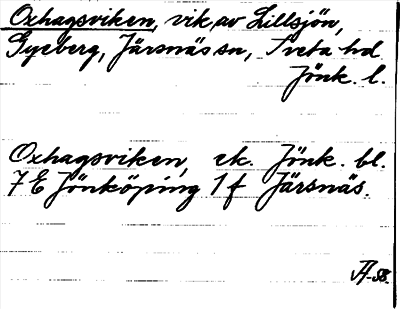 Oxhagsviken, vik av Lillsjön,
Gyeberg, Järsnäs sn, Tveta hd.
Jönk. l.
Oxhagsviken, ek. Jönk. bl.
7 E Jönköping 1 f Järsnäs.